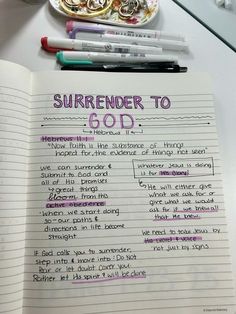 SURRENDER TO
GOD
Hebrews 11
Hebrews 11:1
"Now faith is the substance of things
hoped for, the evidence of things not seen"
we can surrender &
Submit to God and
all of His promises
→ great things
bloom from this
active obedience
• When we start doing
so - our paths &
directions in life become
straight
If God calls you to surrender,
step into & move into: Do Not
Fear or let doubt cover you.
Rather let His spirit & will be done
Whatever Jesus is doing
is for His Glory!
↳ He will either give
what we ask for or
give what we would
ask for if we knew all
that He knew.
We need to seek Jesus by
His word & voice
not just by signs